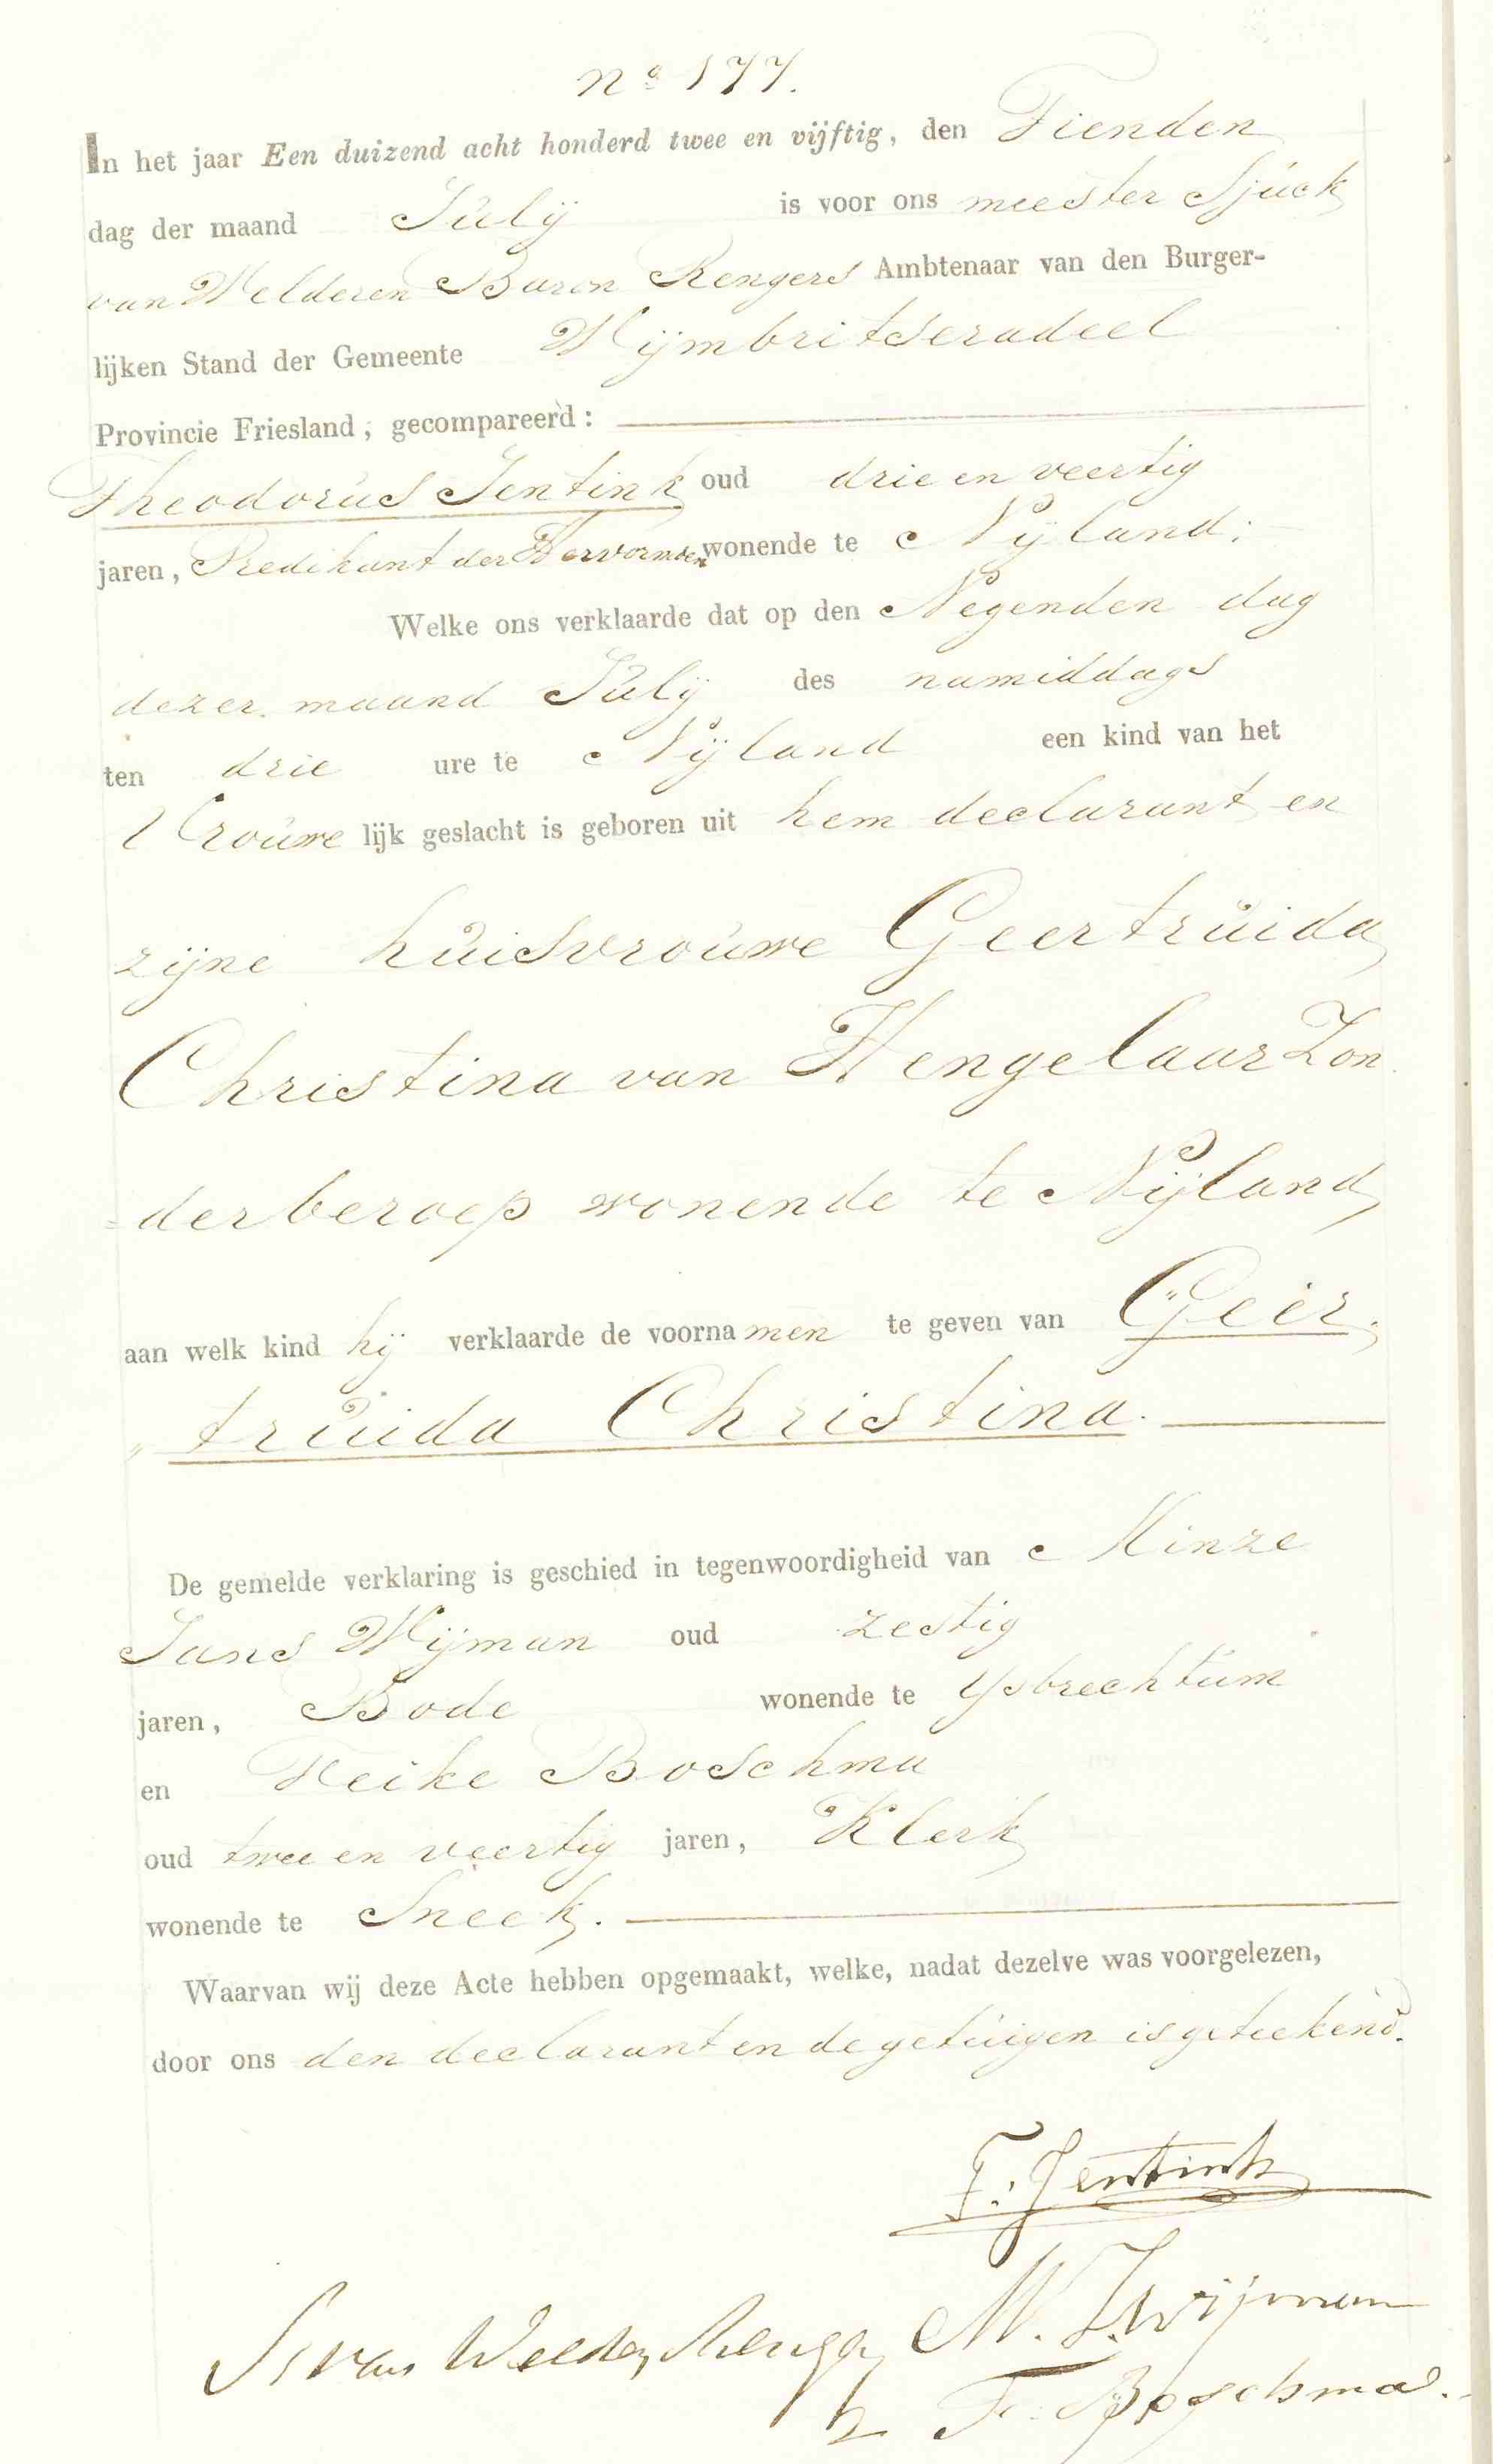 nº 177.
In het jaar Een duizend acht honderd twee en vijftig, den Tienden
dag der maand Julij is voor ons meester Sjuck
van Welderen Baron Rengers Ambtenaar van den Burger-
lijken Stand der Gemeente Wijmbritseradeel
Provincie Friesland, gecompareerd:
Theodorus Jentink oud drie en veertig
jaren, Predikant der Hervormden wonende te Nijland;
Welke ons verklaarde dat op den Negenden dag
dezer maand Julij des namiddags
ten drie ure te Nijland een kind van het
Vrouwelijk geslacht is geboren uit hem declarant en
zijne huisvrouwe Geertruida
Christina van Hengelaar Zon
=der beroep wonende te Nijland
aan welk kind hij verklaarde de voornamen te geven van Geer„
„truida Christina.
De gemelde verklaring is geschied in tegenwoordigheid van Minze
Jans Wijman oud zestig
jaren, Bode wonende te Ysbrechtum
en Feike Boschma
oud twee en veertig jaren, Klerk
wonende te Sneek.
Waarvan wij deze Acte hebben opgemaakt, welke, nadat dezelve was voorgelezen,
door ons den declarant en de getuigen is geteekend.
T. Jentink
S van Welderen Rengers M. J. Wijman
F. Boschma.